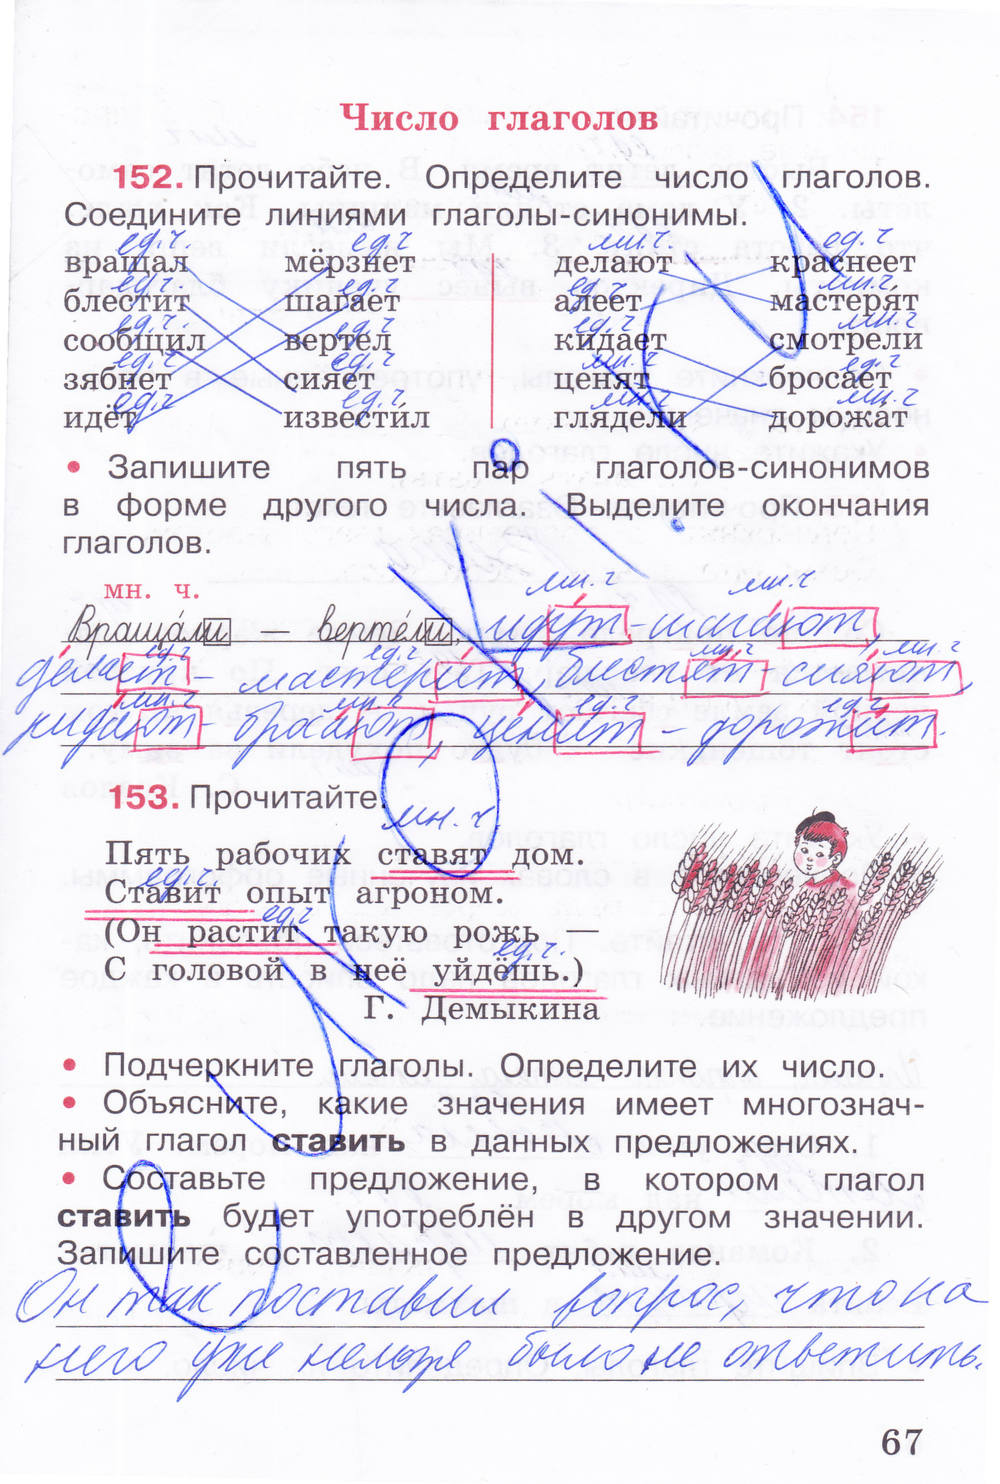 Число глаголов
152. Прочитайте. Определите число глаголов.
Соедините линиями глаголы-синонимы.
ед.ч ед.ч мн.ч ед.ч
вращал мёрзнет делают краснеет
ед.ч ед.ч ед.ч мн.ч
блестит шагает алеет мастерят
ед.ч. ед.ч ед.ч мн.ч
сообщил вертел кидает смотрели
ед.ч ед.ч мн.ч ед.ч
зябнет сияет ценят бросает
ед.ч ед.ч мн.ч мн.ч
идёт известил глядели дорожат
• Запишите пять пар глаголов-синонимов
в форме другого числа. Выделите окончания
глаголов.
мн. ч. мн.ч мн.ч
Вращали — вертели, идут - шагают
ед.ч ед.ч мн.ч мн.ч
делает - мастерит, блестят - сияют,
мн.ч мн.ч ед.ч ед.ч
кидают - бросают, ценит - дорожит.
153. Прочитайте.
мн.ч.
Пять рабочих ставят дом.
ед.ч.
Ставит опыт агроном.
ед.ч
(Он растит такую рожь —
ед.ч.
С головой в неё уйдёшь.)
Г. Демыкина
• Подчеркните глаголы. Определите их число.
• Объясните, какие значения имеет многознач-
ный глагол ставить в данных предложениях.
• Составьте предложение, в котором глагол
ставить будет употреблён в другом значении.
Запишите составленное предложение.
Он так поставил вопрос, что на
него уже нельзя было не ответить.
67